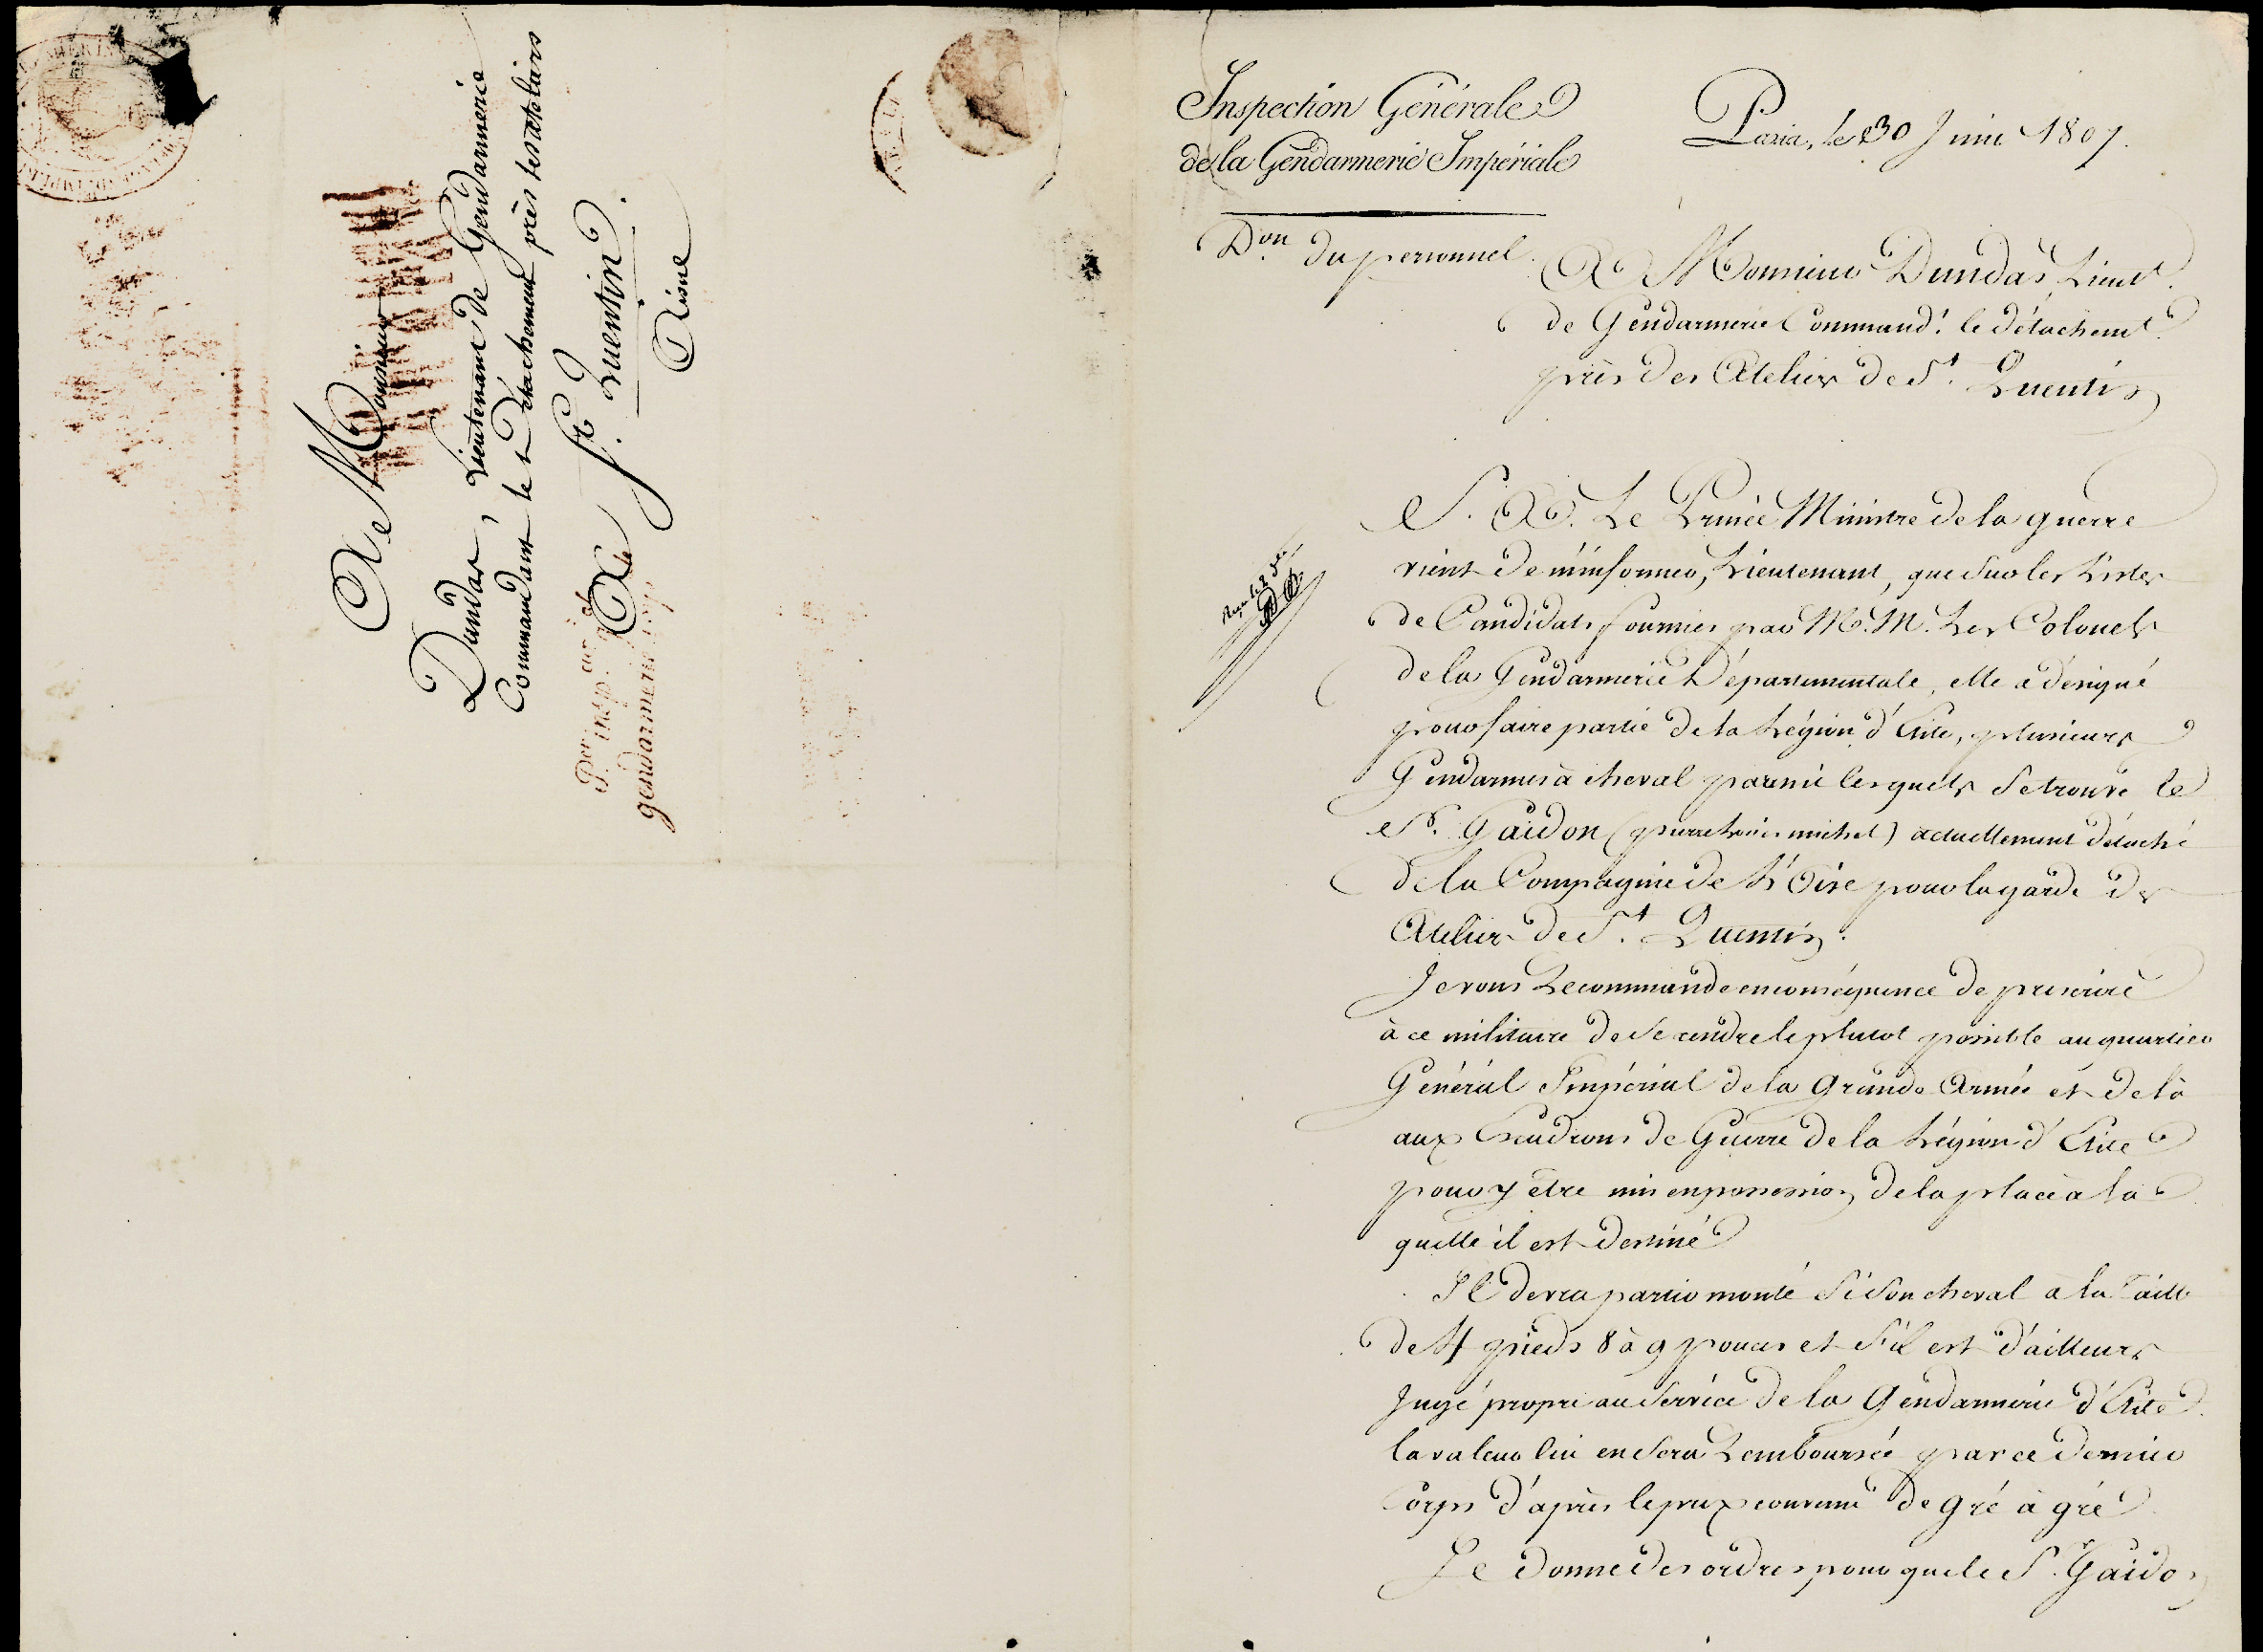 A Monsieur
Dundas, Lieutenant de Gendarmerie
Commandant le Détachement près les ateliers
A St. Quentin.
Aisne
Per. insp.eur g.al
gendarmerie imp.le
Inspection Générale
de la Gendarmerie Impériale
Paris, le 30 Juin 1807.
Don. du personnel.
A Monsieur Dundas, Lieut.
de Gendarmerie Command.t le détachemt.
près des Atelier de St. Quentin
S. A. Le Prince Ministre de la guerre
vient de m'informer, Lieutenant, que sur les Listes
de Candidats fournies par M.M. Les Colonels
de la Gendarmerie Départementale, elle a désigné
pour faire partie de la Légion d'Elite, plusieurs
Gendarmes à cheval parmi lesquels se trouve le
Sr. Gaidon (pierre Louis michel) actuellement détaché
de la Compagnie de L'Oise pour la garde des
Atelier de St. Quentin.
Je vous Recommande en conséquence de prescrire
à ce militaire de se rendre le plutot possible au quartier
Général Impérial de la Grande Armée et de là
aux Escadrons de Guerre de la Légion d'Elite
pour y être mis en possession de la place à la
quelle il est destiné
Il devra partir monté si son cheval a la taille
de 4 pieds 8 à 9 pouces et s'il est d'ailleurs
Jugé propre au service de la Gendarmerie d'Elite
la valeur lui en sera Remboursée par ce dernier
Corps d'après le prix convenu de gré à gré
Je donne des ordres pour que le S. Gaidon